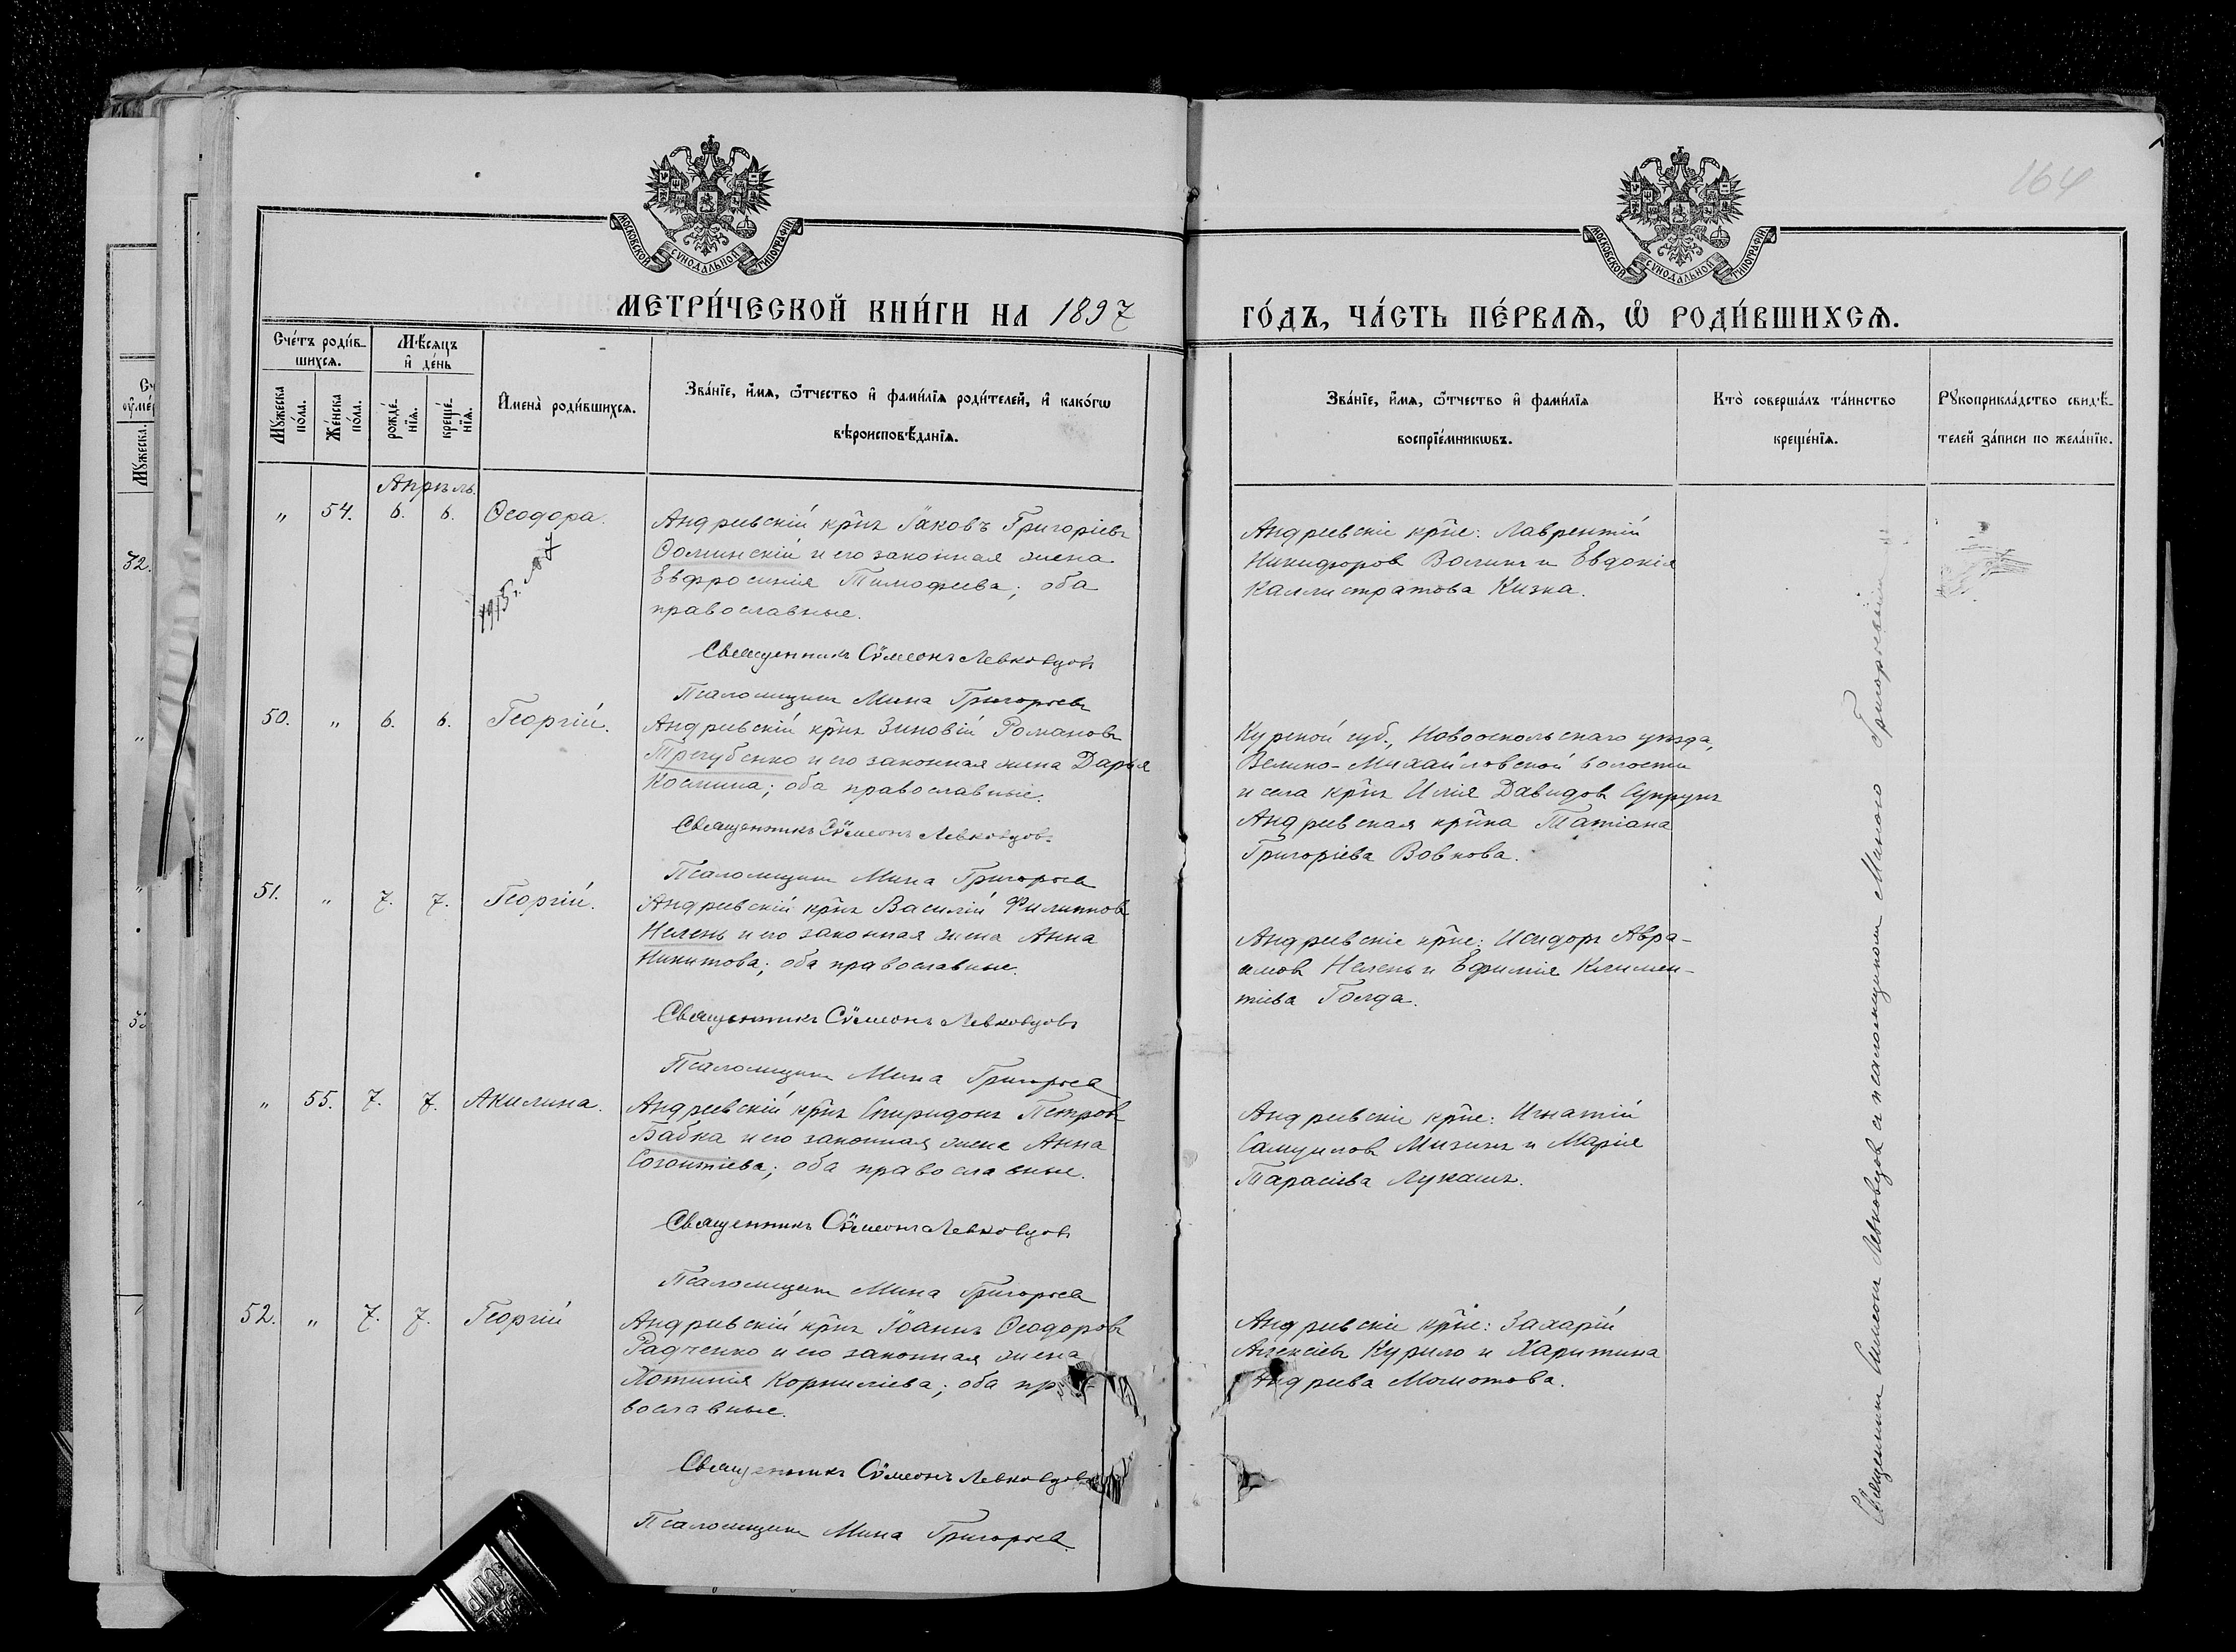 164
МОСКОВСКОЙ СѴНОДАЛЬНОЙ ТИПОГРАФІИ
МОСКОВСКОЙ СѴНОДАЛЬНОЙ ТИПОГРАФІИ
МЕТРИ́ЧЕСКОЙ КНИ́ГИ НА 1897
ГО́ДЪ, ЧА́СТЬ ПЕ́РВАѦ, Ѡ҆ РОДИ́ВШИХСѦ.
Сче́тъ роди́в-
шихсѧ.
Мѣ́сѧцъ
и҆ де́нь
Мꙋ́жеска
по́ла.
Же́нска
по́ла.
рожде́-
нїѧ.
креще́-
нїѧ.
И҆мена̀ роди́вшихсѧ.
Зва́нїе, и҆́мѧ, ѻ҆́тчество и҆ фами́лїѧ роди́телей, и҆ како́гѡ
вѣроисповѣ́данїѧ.
Зва́нїе, и҆́мѧ, ѻ҆́тчество и҆ фами́лїѧ
воспрїе́мникѡвъ.
Кто̀ соверша́лъ та́инство
креще́нїѧ.
Рꙋкоприкла́дство свидѣ́-
телей за́писи по жела́нїю.
Апрѣль.
" 54. 6. 6. Ѳеодора.
Андреевскій кр̃нъ Іаковъ Григоріевъ
Ѳоминскій и его законная жена
Евфросинія Тимофеева; оба
православные.
Священникъ Сѷмеонъ Левковцовъ
Псаломщикъ Мина Григорьевъ
Андреевскіе кр̃не: Лаврентій
Никифоровъ Воликъ и Евдокія
Каллистратова Кизка.
1915 г.
50. " 6. 6. Георгій.
Андреевскій кр̃нъ Зиновій Романовъ
Трегубенко и его законная жена Дарья
Косьмина; оба православные.
Священникъ Сѷмеонъ Левковцовъ
Псаломщикъ Мина Григорьевъ
Курской губ., Новооскольскаго уѣзда,
Велико-Михайловской волости
и села кр̃нъ Илія Давидовъ Супрунъ
Андреевская кр̃нка Татіана
Григоріева Вовкова.
51. " 7. 7. Георгій.
Андреевскій кр̃нъ Василій Филипповъ
Нелень и его законная жена Анна
Никитова; оба православные.
Священникъ Сѷмеонъ Левковцовъ
Псаломщикъ Мина Григорьевъ
Андреевскіе кр̃не: Исидоръ Авра-
амовъ Нелень и Ефимія Климен-
тіева Голда.
" 55. 7. 7. Акилина.
Андреевскій кр̃нъ Спиридонъ Петровъ
Бабка и его законная жена Анна
Созонтіева; оба православные.
Священникъ Сѷмеонъ Левковцовъ
Псаломщикъ Мина Григорьевъ
Андреевскіе кр̃не: Игнатій
Самуиловъ и Марія
Тарасіева Лукашъ.
52. " 7. 7. Георгій
Андреевскій кр̃нъ Іоаннъ Ѳеодоровъ
Радченко и его законная жена
Хотинія Корниліева; оба пр
вославные.
Священникъ Сѷмеонъ Левковцовъ
Псаломщикъ Мина Григорьевъ.
Андреевскіе кр̃не: Захарій
Алексіевъ Курило и Харитина
Андреева Молотова.
Священникъ Симеонъ Левковцовъ съ псаломщикомъ Миною Григорьевымъ
Мꙋ́жеска.
32.